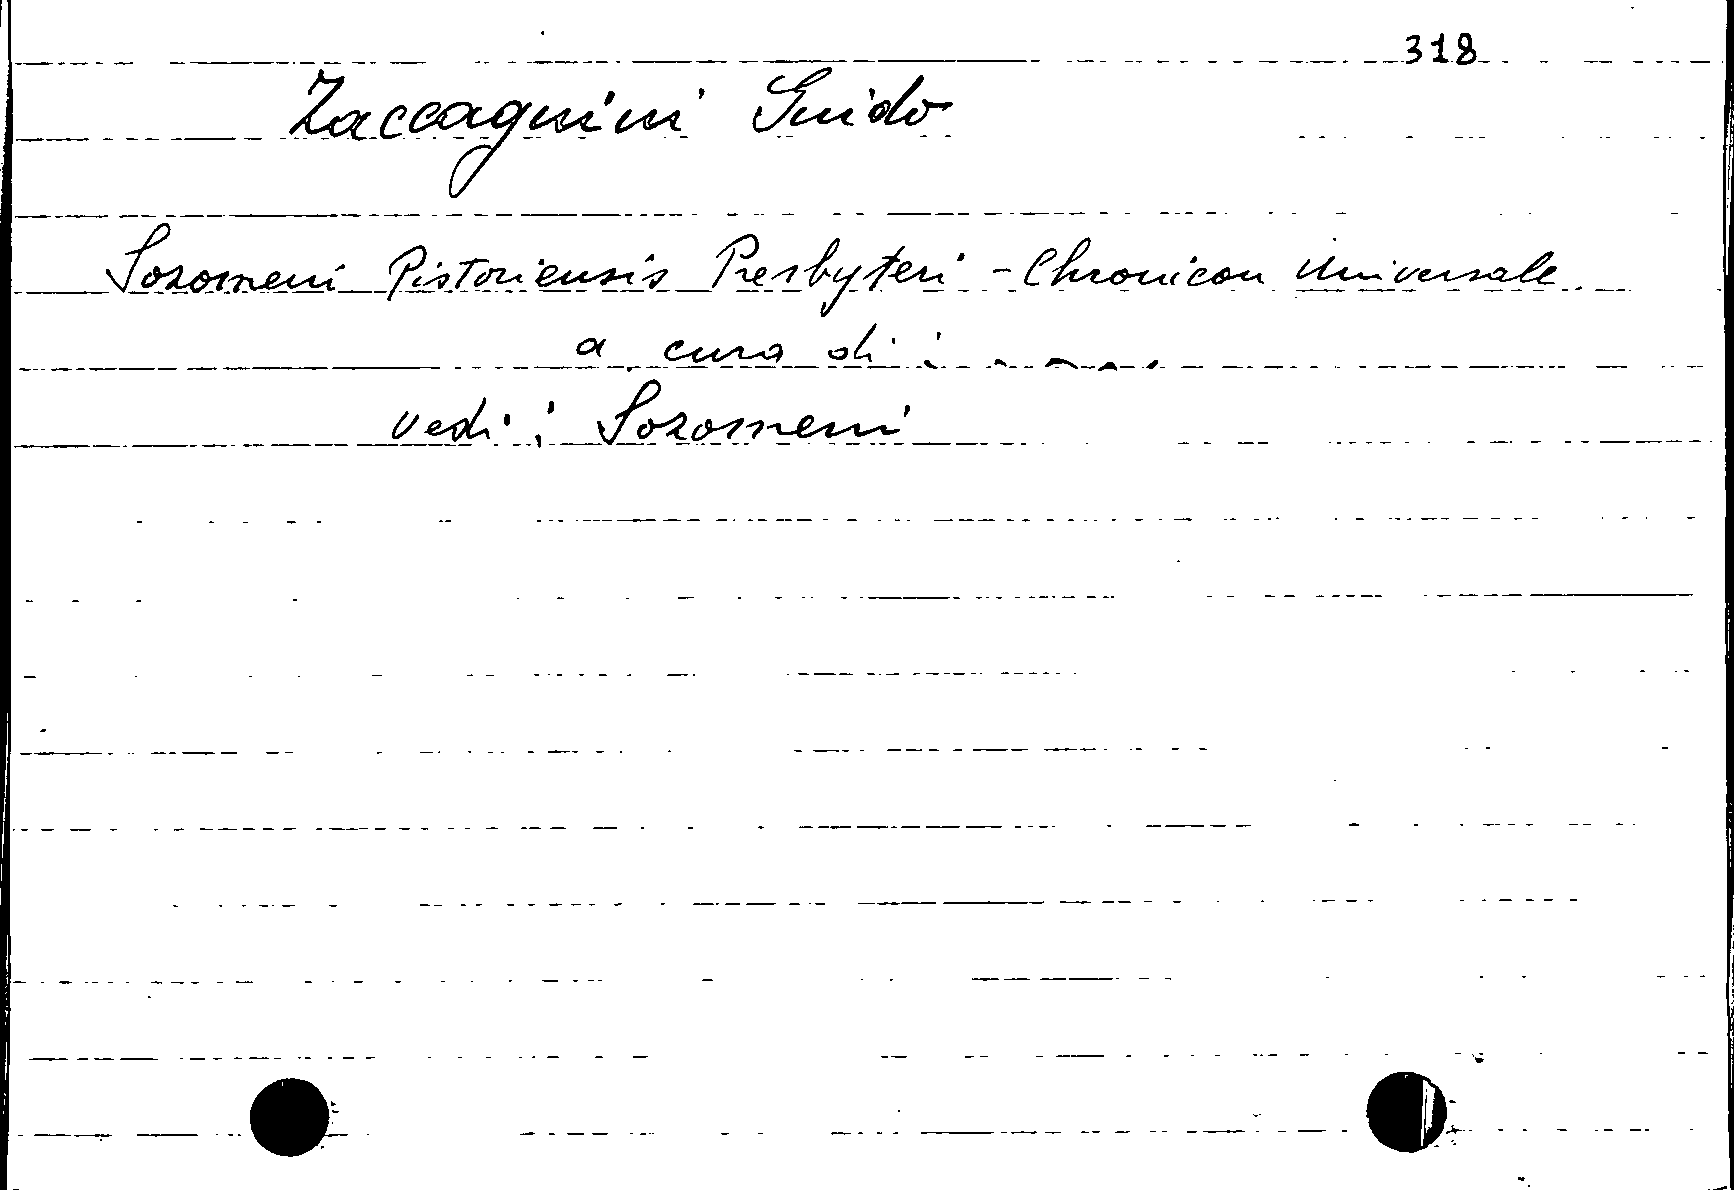 318
Zaccagnini Guido
Sozomeni Pistoriensis Presbyteri - Chronicon Universale.
a cura di : . . . . .
vedi : Sozomeni